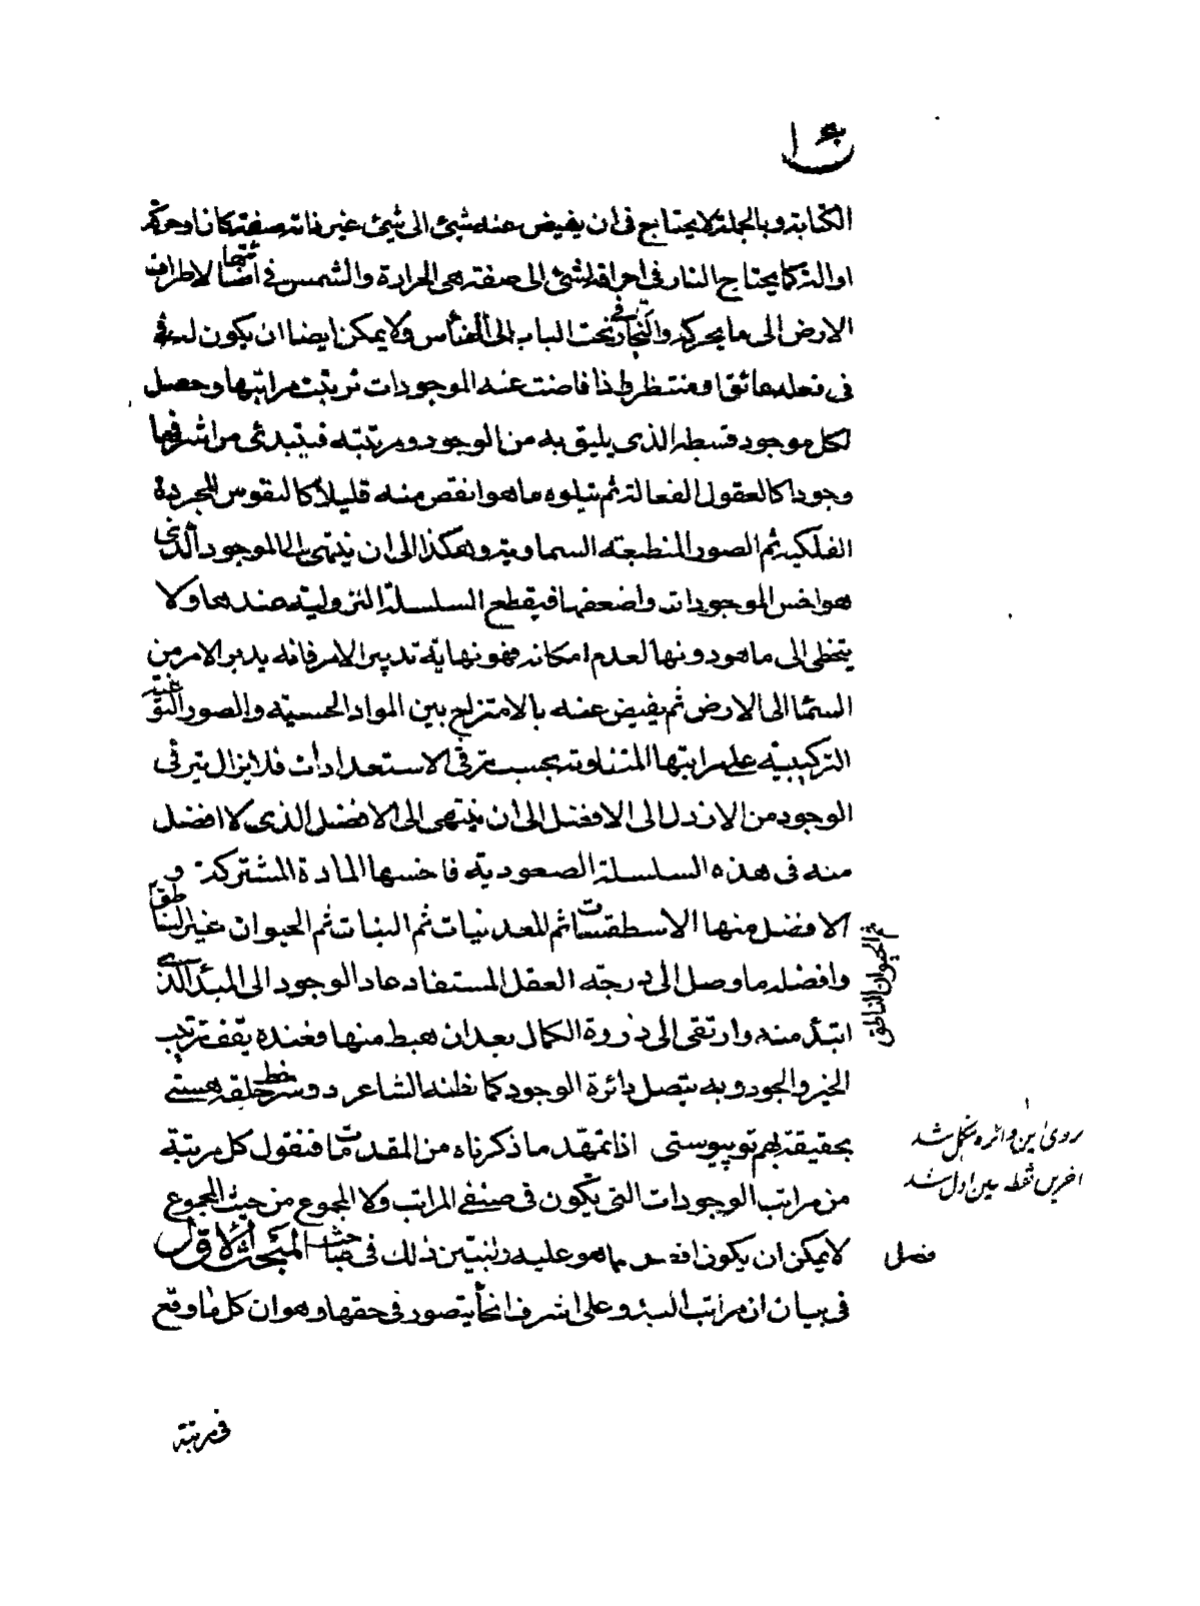 الكتابة وبالجملة لا يحتاج فى ان يفيض عنه شئ الى شئ غير ذاته صفة كان او حركة
او الة كما يحتاج النار فى احراقه لشئ الى صفة هى الحرارة والشمس فى اضائتها لاطراف
الارض الى ما يحركه والنجار فى نحت الباب الى الفأس ولا يمكن ايضا ان يكون له
فى فعله عائق او منتظر واذا فاضت عنه الموجودات ترتبت مراتبها وحصل
لكل موجود قسطه الذى يليق به من الوجود ومرتبته فيبتدئ من اشرفها
وجودا كالعقول الفعالة ثم تيلوه ما هو انقص منه قليلا كالنفوس المجردة
الفلكيه ثم الصور المنطبعته السماوية وهكذا الى ان ينتهى الى الموجود الذى
هو اخس الموجودات واضعفها فيقطع السلسلة النزوليته عندها ولا
يتخطى الى ما هو دونها لعدم امكانه فهو نهاية تدبير الامر فانه يدبر الامر من
السمآ الى الارض ثم يفيض عنه بالامتزاج بين المواد الحسيته والصور النوعية
التركيبيته على مراتبها المتفاوته بحسب ترقى الاستعدادات فلا يزال يترقى
الوجود من الارذل الى الافضل الى ان ينتهى الى الافضل الذى لا افضل
منه فى هذه السلسلة الصعودية فاخسها المادة المشتركة و
الافضل منها الاسطقسات ثم المعدنيات ثم النبات ثم الحيوان غير الناطق
ثم الحيوان الناطق
وافضله ما وصل الى درجته العقل المستفاد عاد الوجود الى المبدأ الذى
ابتدأ منه وارتقى الى ذروة الكمال بعد ان هبط منها وعنده يقف ترتيب
الخير والجود وبه يتصل دائرة الوجود كما نظمه الشاعر دو سر خط حلقه هستى
بحقيقة بهم تو پيوستى اذا تمهد ما ذكرناه من المقدمات فنقول كل مرتبة
روى اين دائره شكل شد
اخرين نقطه عين اول شد
من مراتب الوجودات التى يكون فى صنفى المراتب ولا المجموع من حيث المجموع
لا يمكن ان يكون افضل مما هو عليه ولنبين ذلك فى مباحث المبحث الاول
فصلى
فى بيان ان مراتب البدو على اشرف انحأ يتصور فى حقها وهو ان كل ما وقع
فى مرتبة